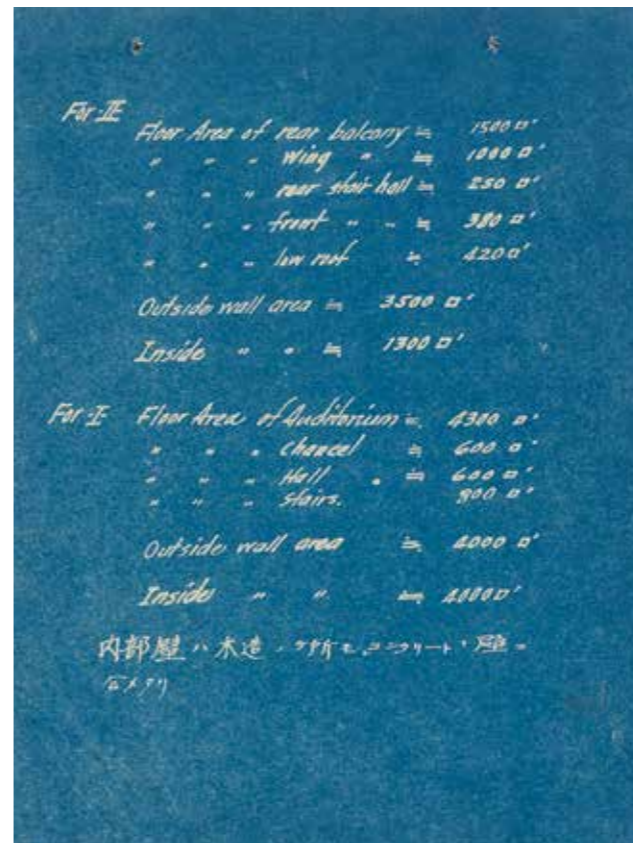 For-II
Floor Area of rear balcony ≒ 1500 □'
" " " Wing " ≒ 1000 □'
" " " rear stair hall ≒ 250 □'
" " " front " " ≒ 380 □'
" " " low roof ≒ 420 □'
Outside wall area ≒ 3500 □'
Inside " " ≒ 1300 □'
For-I- Floor Area of Auditorium ≒ 4300 □'
" " " Chancel ≒ 600 □'
" " " Hall " ≒ 600 □'
" " " Stairs. 800 □'
Outside wall area ≒ 4000 □'
Inside " " ≒ 4000 □'
内部壁ハ木造ノ ヶ所モ コンクリート 壁